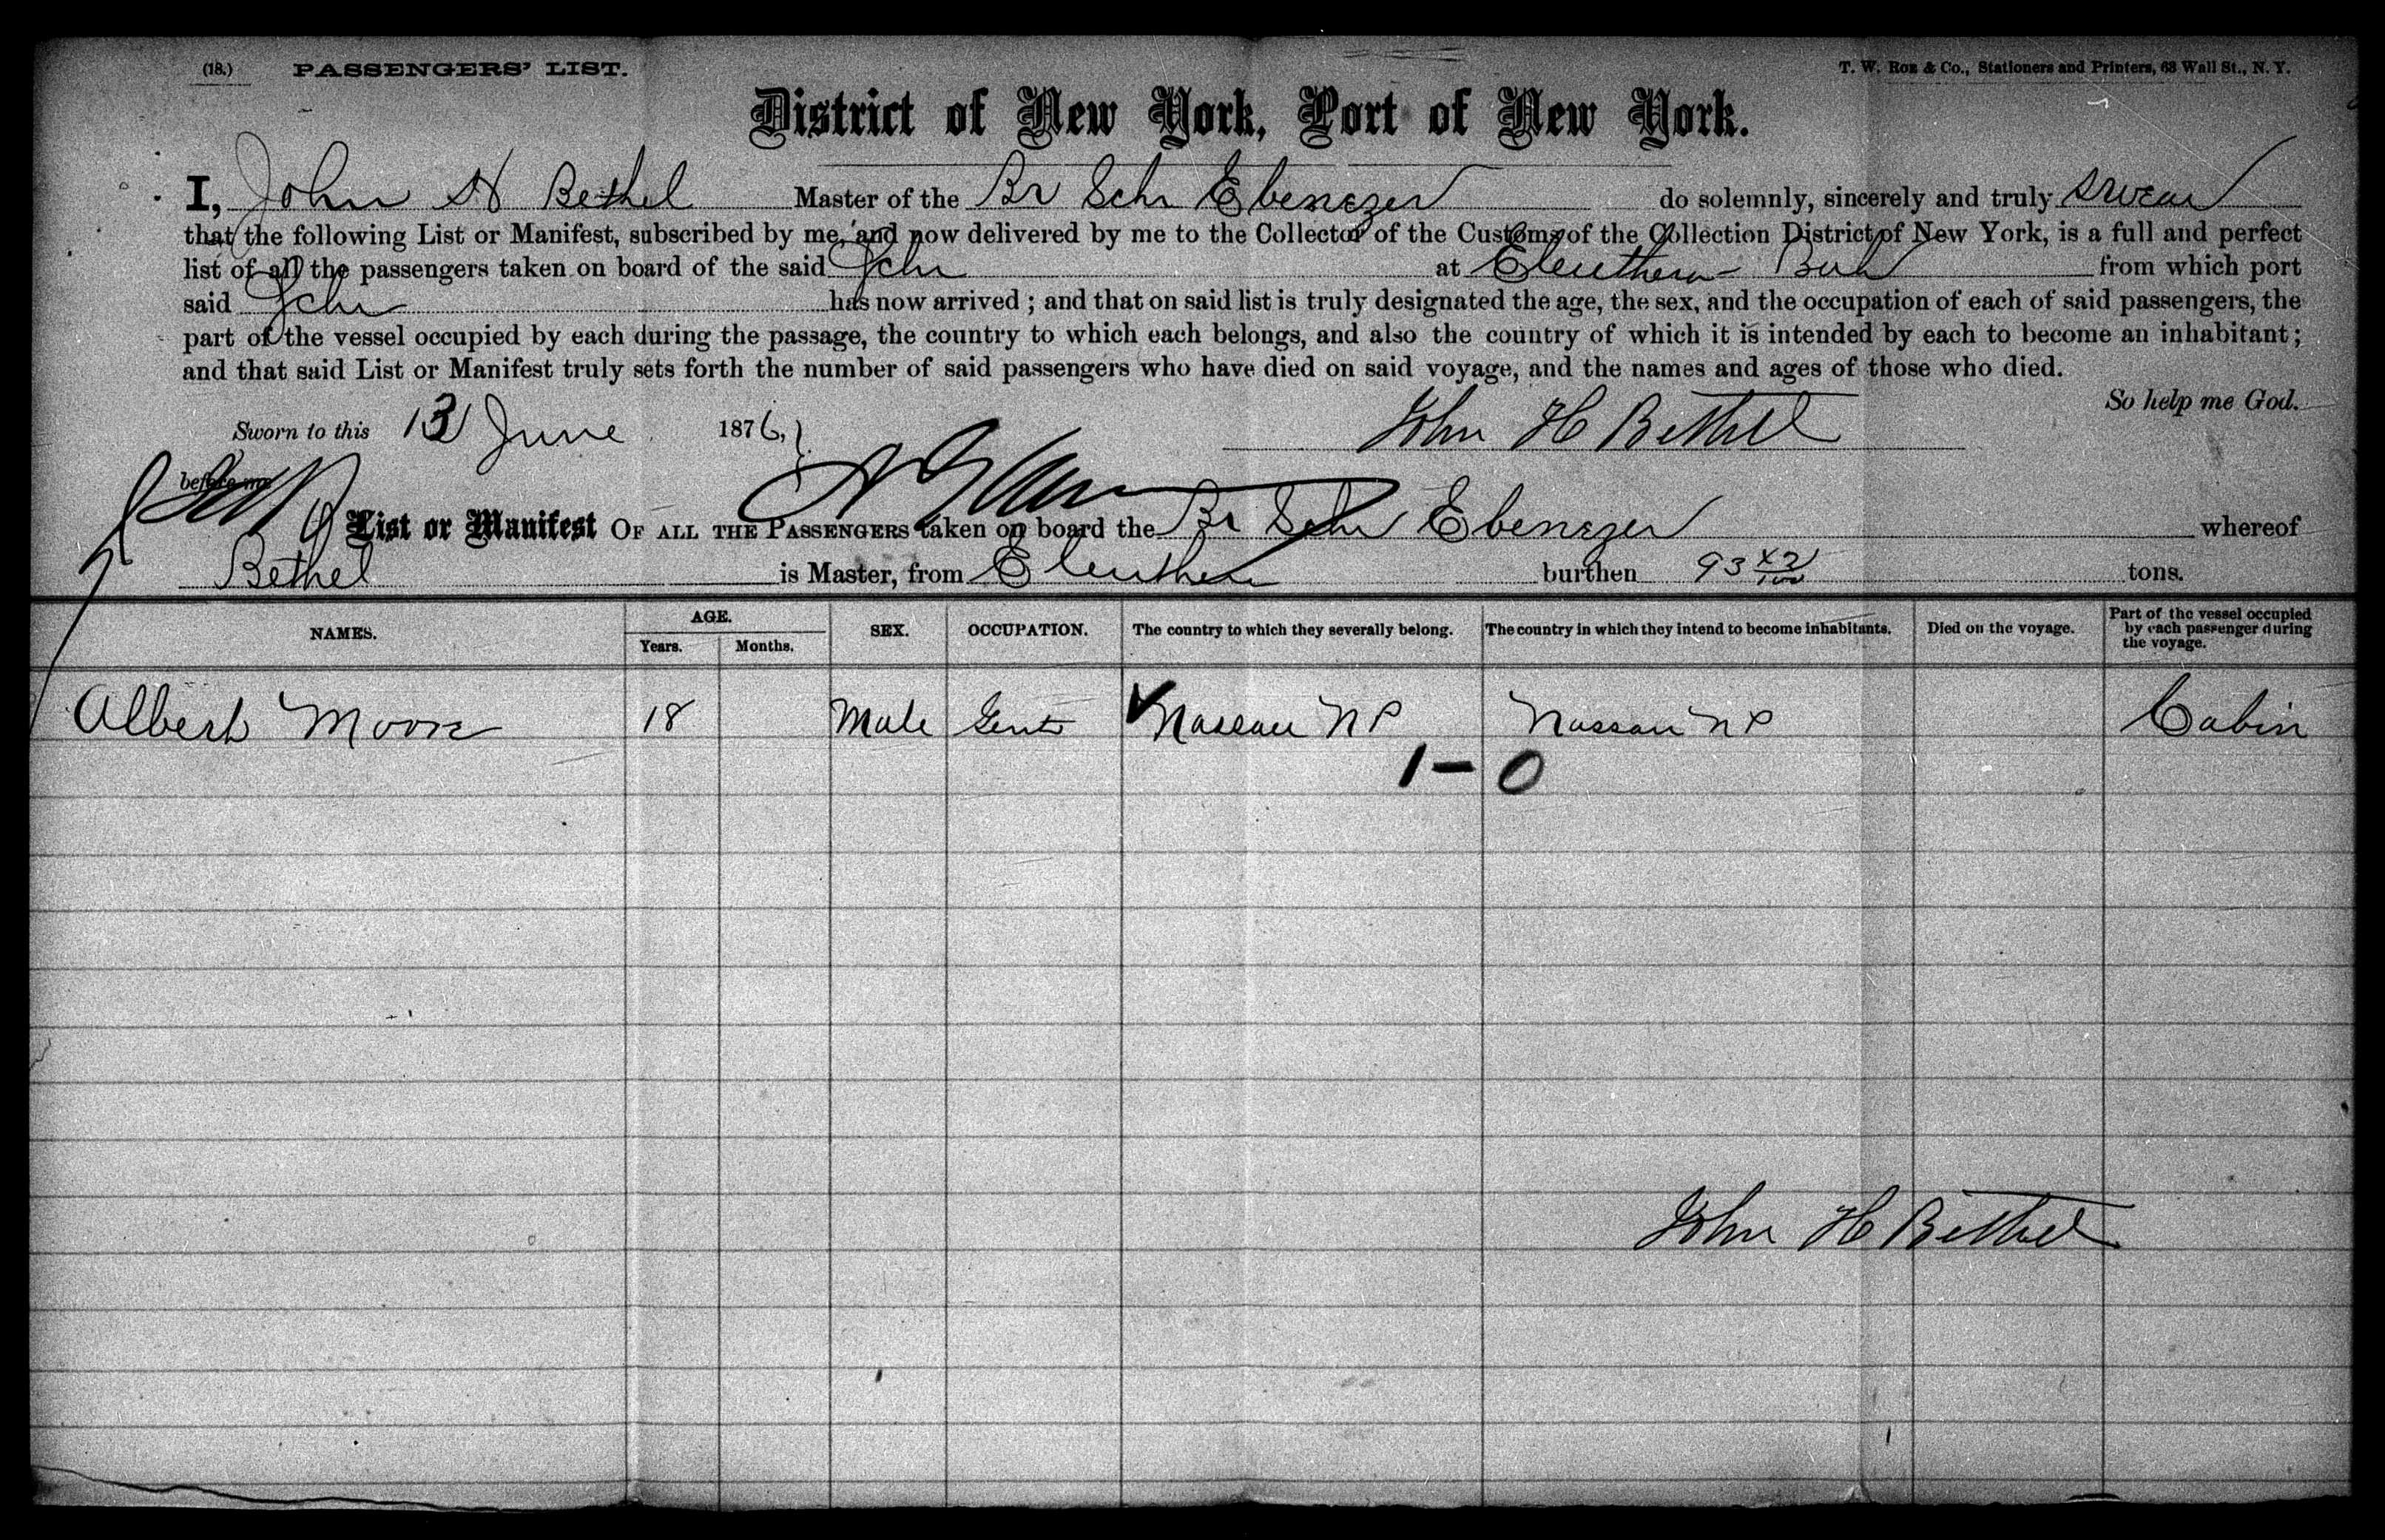 (18.) PASSENGERS' LIST. T. W. Roe & Co., Stationers and Printers, 63 Wall St., N. Y.
District of New York, Port of New York.
I, John H Bethel Master of the Br Schr Ebenezer do solemnly, sincerely and truly swear
that the following List or Manifest, subscribed by me, and now delivered by me to the Collector of the Customs of the Collection District of New York, is a full and perfect
list of all the passengers taken on board of the said Schr at Eleuthera Bah from which port
said Schr has now arrived ; and that on said list is truly designated the age, the sex, and the occupation of each of said passengers, the
part of the vessel occupied by each during the passage, the country to which each belongs, and also the country of which it is intended by each to become an inhabitant;
and that said List or Manifest truly sets forth the number of said passengers who have died on said voyage, and the names and ages of those who died.
So help me God.
Sworn to this 13 June 1876, John H Bethel
before me
List or Manifest OF ALL THE PASSENGERS taken on board the Br Schr Ebenezer whereof
Bethel is Master, from Eleuthera burthen 93 42/100 tons.
NAMES. AGE. Years. Months. SEX. OCCUPATION. The country to which they severally belong. The country in which they intend to become inhabitants. Died on the voyage. Part of the vessel occupied by each passenger during the voyage.
Albert Moore 18 Male Gent Nassau NP Nassau NP Cabin
1 - 0
John H Bethel